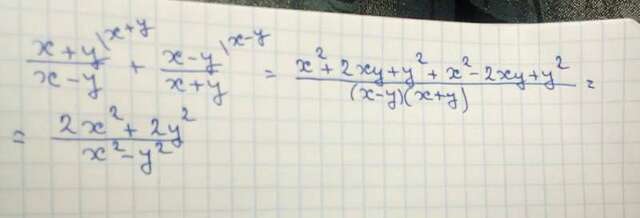 (x+y)/(x-y) \x+y + (x-y)/(x+y) \x-y = (x²+2xy+y²+x²-2xy+y²)/((x-y)(x+y)) =
= (2x²+2y²)/(x²-y²)